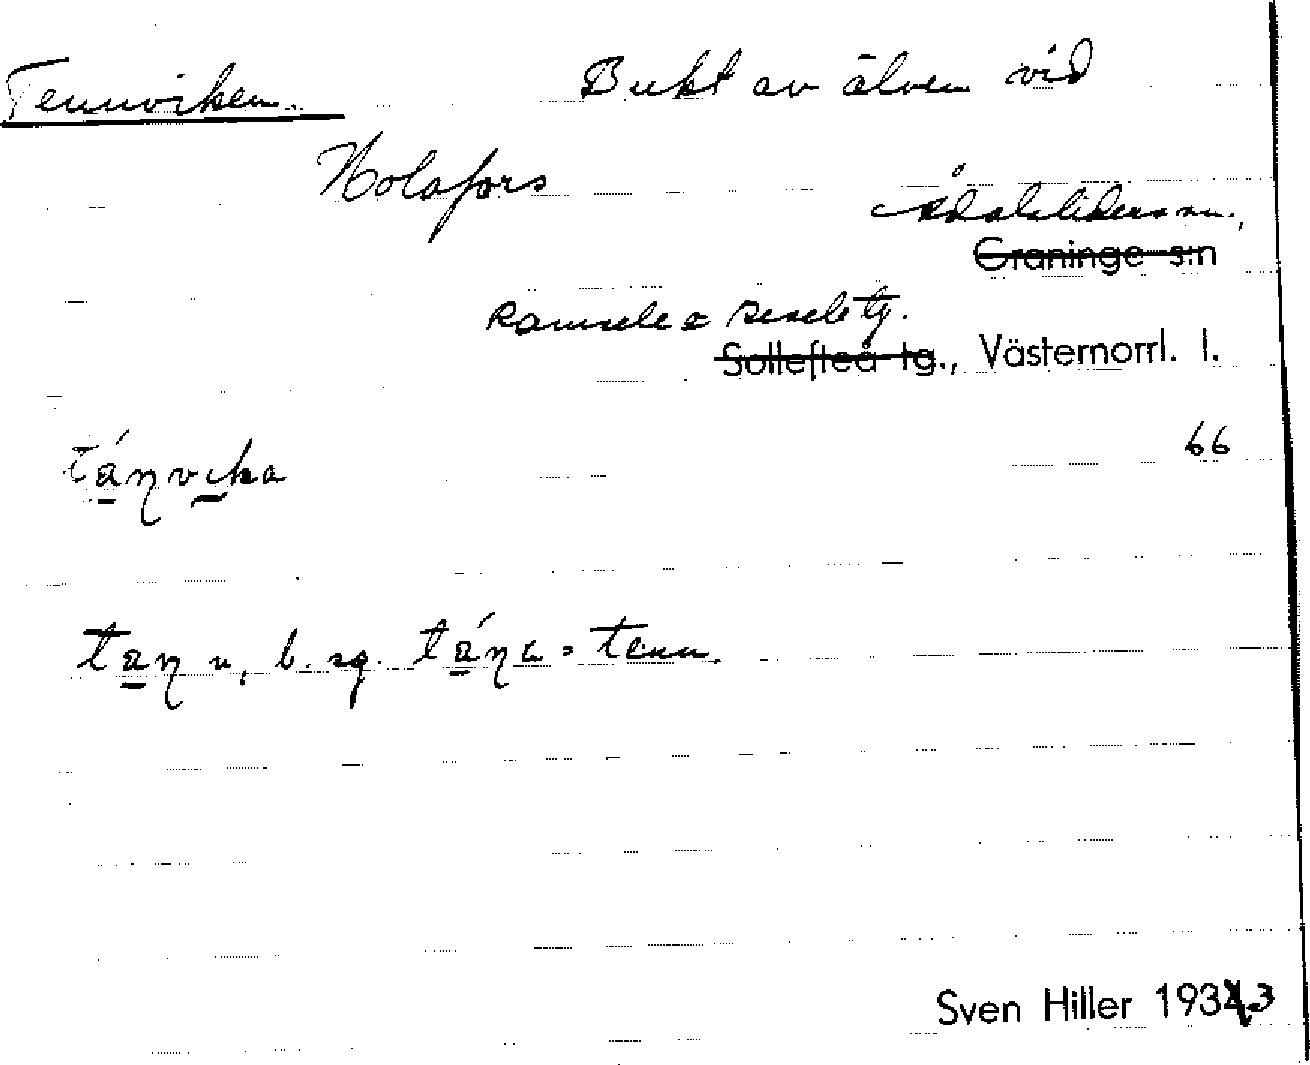 Tennviken. Bukt av älven vid
Holafors
Ådalslidens sn.,
Graninge s:n
Ramsele o Resele tg.
Sollefteå tg., Västernorrl. l.
66
n, b. sg. = tenn.
Sven Hiller 1933